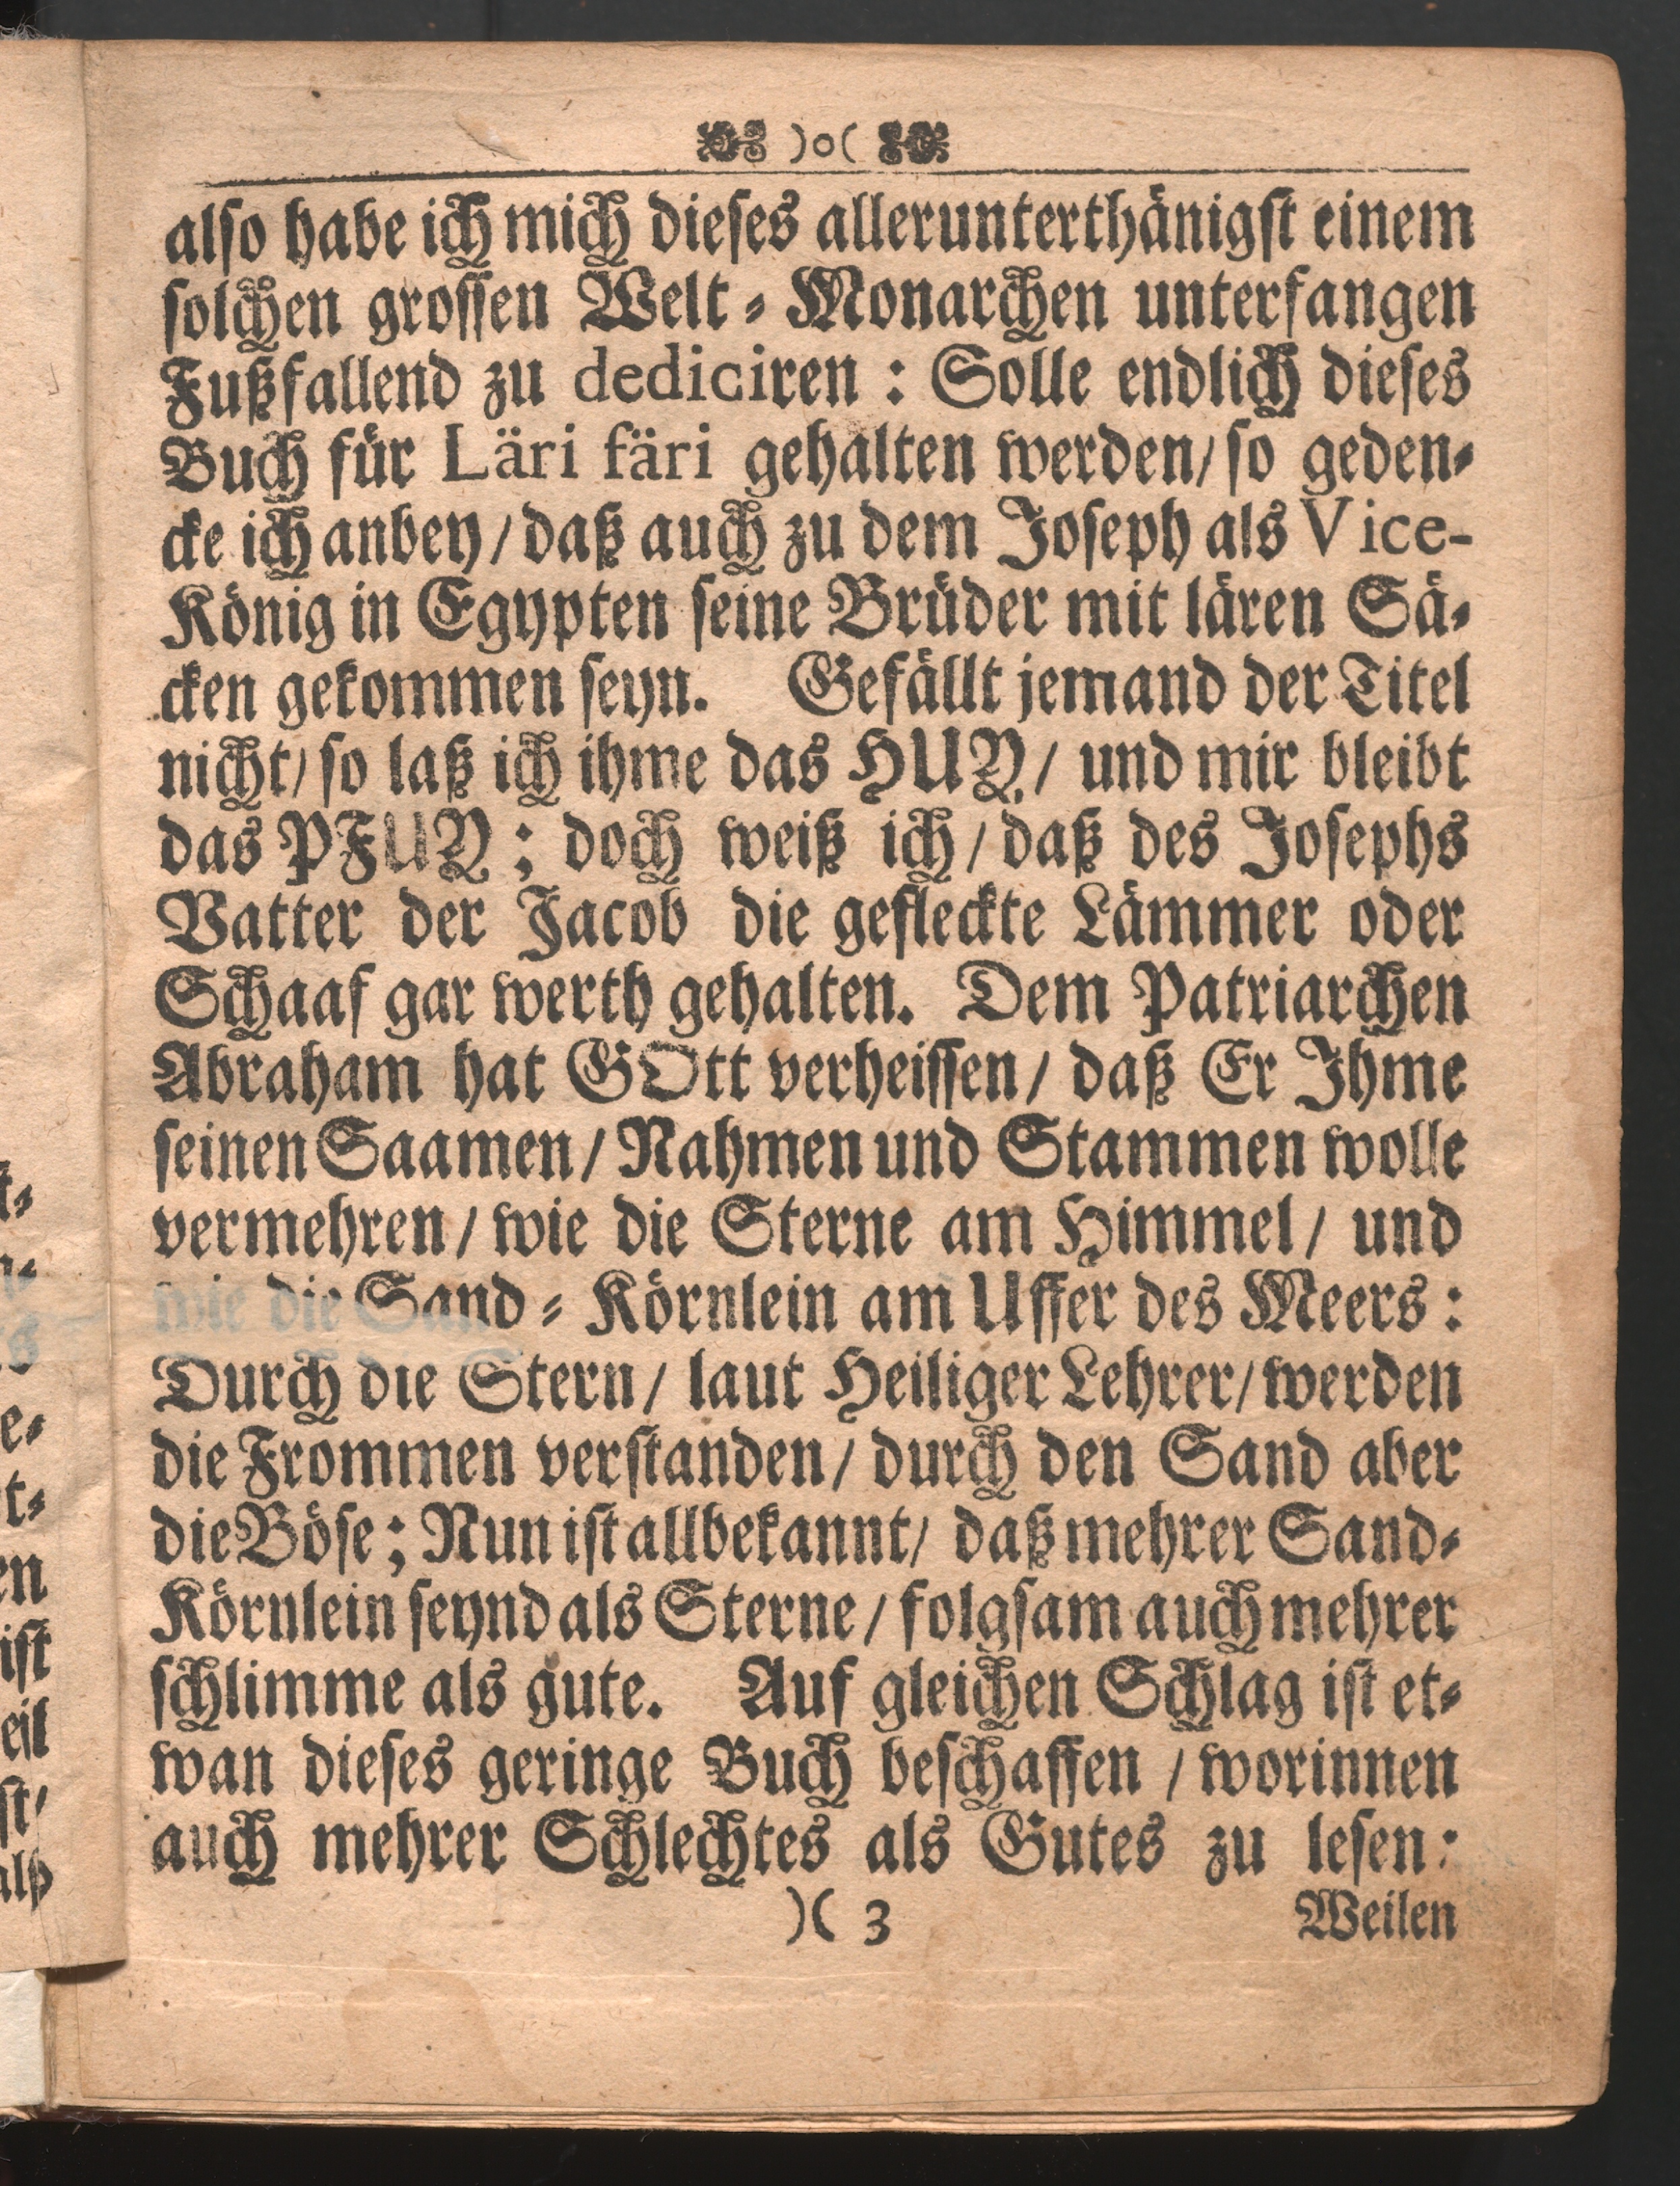 )o(
also habe ich mich dieses allerunterthänigst einem
solchen grossen Welt-Monarchen unterfangen
Fußfallend zu dediciren: Solle endlich dieses
Buch für Läri färi gehalten werden/ so geden-
cke ich anbey/ daß auch zu dem Joseph als Vice-
König in Egypten seine Brüder mit lären Sä-
cken gekommen seyn. Gefällt jemand der Titel
nicht/ so laß ich ihme das HUY/ und mir bleibt
das PFUY; doch weiß ich/ daß des Josephs
Vatter der Jacob die gefleckte Lämmer oder
Schaaf gar werth gehalten. Dem Patriarchen
Abraham hat GOtt verheissen/ daß Er Ihme
seinen Saamen/ Nahmen und Stammen wolle
vermehren/ wie die Sterne am Himmel/ und
wie die Sand-Körnlein am Uffer des Meers:
Durch die Stern/ laut Heiliger Lehrer/ werden
die Frommen verstanden/ durch den Sand aber
die Böse; Nun ist allbekannt/ daß mehrer Sand-
Körnlein seynd als Sterne/ folgsam auch mehrer
schlimme als gute. Auf gleichen Schlag ist et-
wan dieses geringe Buch beschaffen / worinnen
auch mehrer Schlechtes als Gutes zu lesen:
)( 3 Weilen